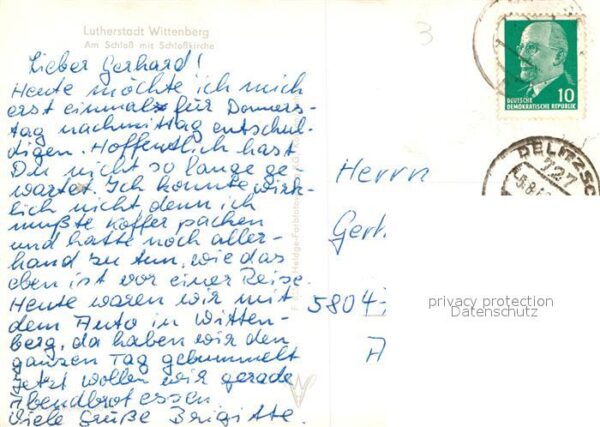 Lutherstadt Wittenberg
Am Schloß mit Schloßkirche
Lieber Gerhard!
Heute möchte ich mich
erst einmal für Donners-
tag nachmittag entschul-
digen. Hoffentlich hast
Du nicht so lange ge-
wartet. Ich konnte wirk-
lich nicht denn ich
mußte Koffer packen
und hatte noch aller-
hand zu tun, wie das
eben ist vor einer Reise.
Heute waren wir mit
dem Auto in Witten-
berg, da haben wir den
ganzen Tag gebummelt
Jetzt wollen wir gerade
Abendbrot essen
Viele Grüße Brigitte.
3
10
DEUTSCHE
DEMOKRATISCHE REPUBLIK
DELITZSC
727
Herrn
Gerh
5804
A
privacy protection
Datenschutz